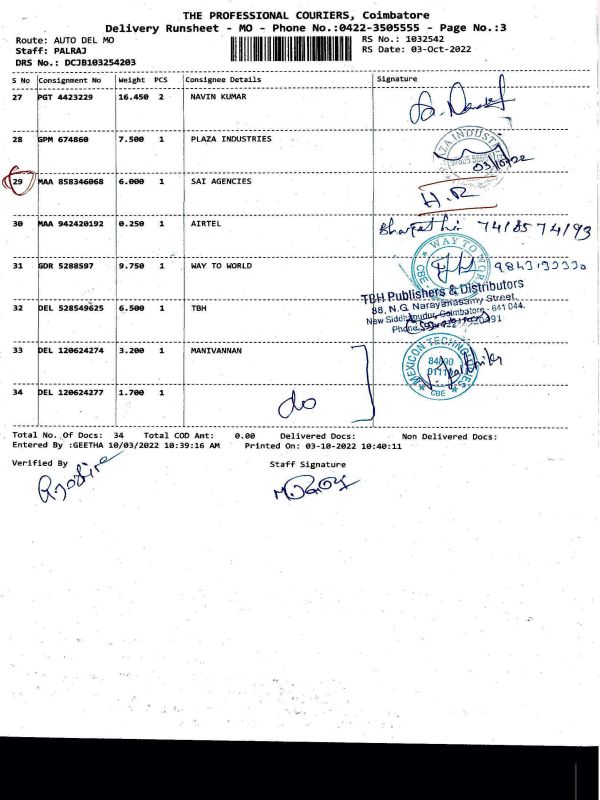 THE PROFESSIONAL COURIERS, Coimbatore
Delivery Runsheet - MO - Phone No.:0422-3505555 - Page No.:3
Route: AUTO DEL MO RS No.: 1032542
Staff: PALRAJ RS Date: 03-Oct-2022
DRS No.: DCJB103254203
S No Consignment No Weight PCS Consignee Details Signature
27 PGT 4423229 16.450 2 NAVIN KUMAR
28 GPM 674860 7.500 1 PLAZA INDUSTRIES
03/10/22
29 MAA 858346068 6.000 1 SAI AGENCIES H.R
30 MAA 942420192 0.250 1 AIRTEL Bharathi 74185 74193
31 GDR 5288597 9.750 1 WAY TO WORLD
WAY TO WOR
CBE
TBH Publishers & Distributors
88, N.G. Narayanasamy Street,
New Siddhapudur, Coimbatore - 641 044.
32 DEL 528549625 6.500 1 TBH
33 DEL 120624274 3.200 1 MANIVANNAN
MEXICON TECHNOLOGIES
CBE
34 DEL 120624277 1.700 1 do
Total No. Of Docs: 34 Total COD Amt: 0.00 Delivered Docs: Non Delivered Docs:
Entered By :GEETHA 10/03/2022 10:39:16 AM Printed On: 03-10-2022 10:40:11
Verified By Staff Signature